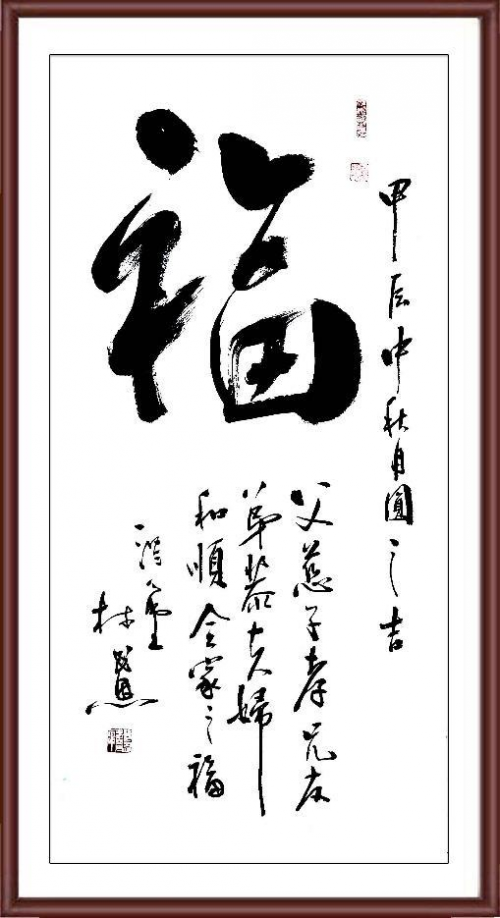 福
甲辰中秋月圓之吉
父慈子孝兄友
弟恭夫婦
和順全家之福
林